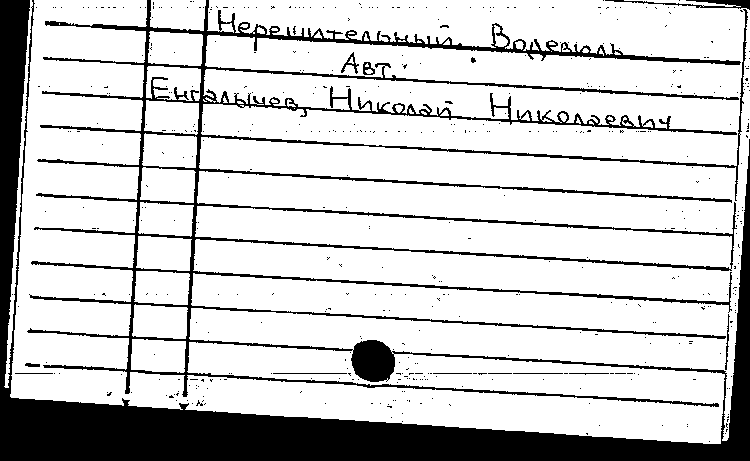 Нерешительный. Водевиль
Авт.
Енгалычев, Николай Николаевич